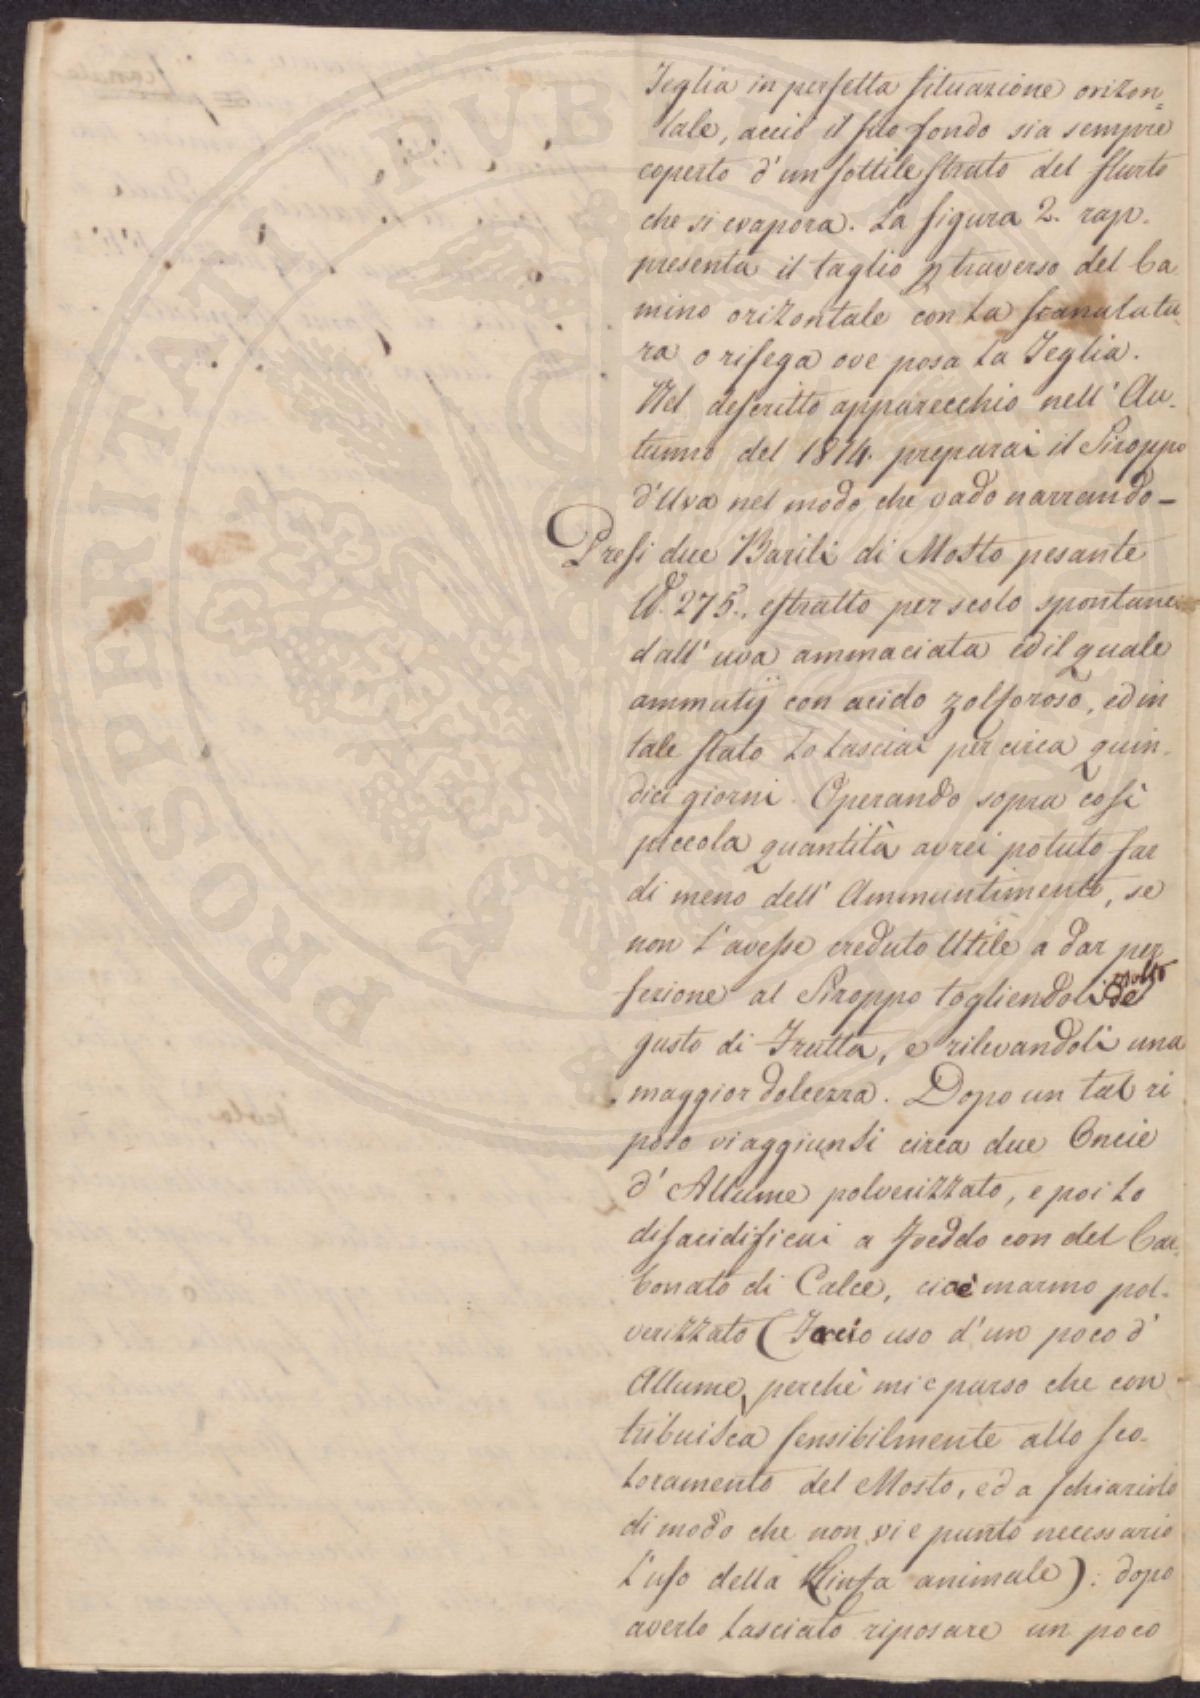 Teglia in perfetta situazione orizon-
tale, acciò il suo fondo sia sempre
coperto d'un sottile strato del fluito
che si evapora. La figura 2. rap-
presenta il taglio p traverso del Ca
mino orizontale con la scanalatu
ra o risega ove posa la Teglia.
Nel descritto apparecchio nell'Au-
tunno del 1814. preparai il Siroppo
d'Uva nel modo che vado narrando-
Presi due Barili di Mosto pesante
lb. 275., estratto per scolo spontane
dall'uva ammaciata ed il quale
ammutij con acido zolforoso, ed in
tale stato lo lasciai per circa quin-
dici giorni. Operando sopra così
piccola quantità avrei potuto far
di meno dell'Ammuntimento, se
non l'avesse creduto Utile a dar per
fezione al Siroppo togliendoli molto de
gusto di Frutta, e rilevandoli una
maggior dolcezza. Dopo un tal ri
poso vi aggiunsi circa due Oncie
d'Allume polverizzato, e poi lo
disacidificai a freddo con del Car-
bonato di Calce, cioè marmo pol-
verizzato (Faccio uso d'un poco d'
Allume, perchè mi è parso che con
tribuisca sensibilmente allo sco-
loramento del Mosto, ed a schiarirlo
di modo che non vi e punto necessario
l'uso della Linfa animale): dopo
averlo lasciato riposare un poco
PROSPERITATI PUBLI